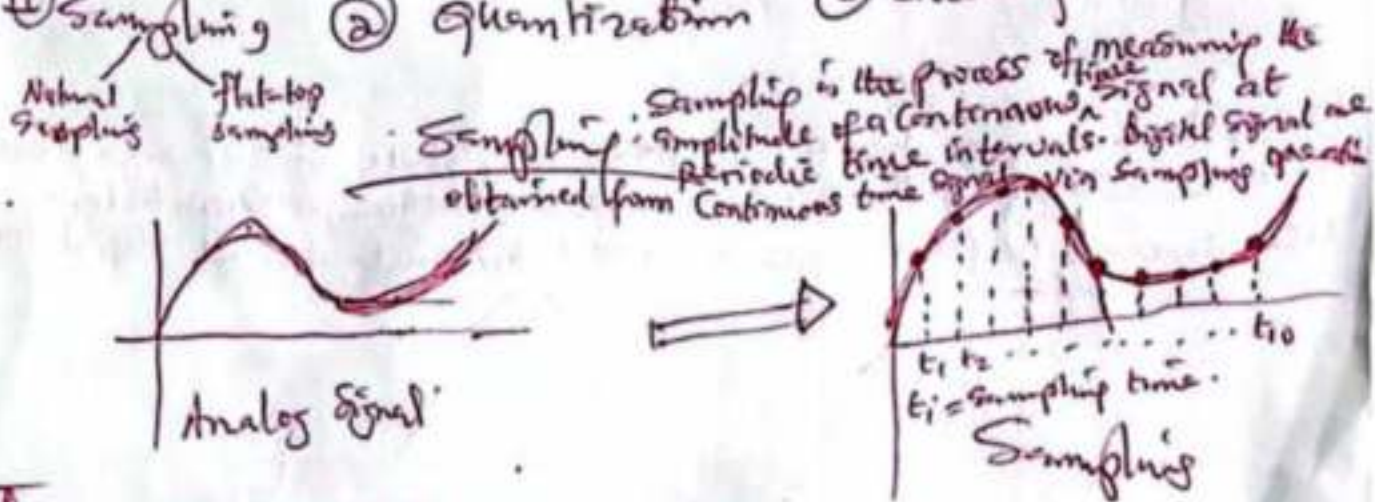 ① Sampling ② Quantization
Natural Sampling
flat-top Sampling
Sampling : Sampling is the process of measuring the
amplitude of a Continuous time signal at
periodic time intervals. Digital Signal are
obtained from Continuous time signal via Sampling
Analog Signal
t1 t2 ........ t10
ti = Sampling time.
Sampling